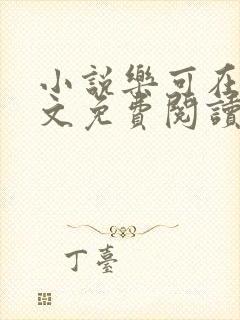 小說樂可在
文免費閱讀
丁臺